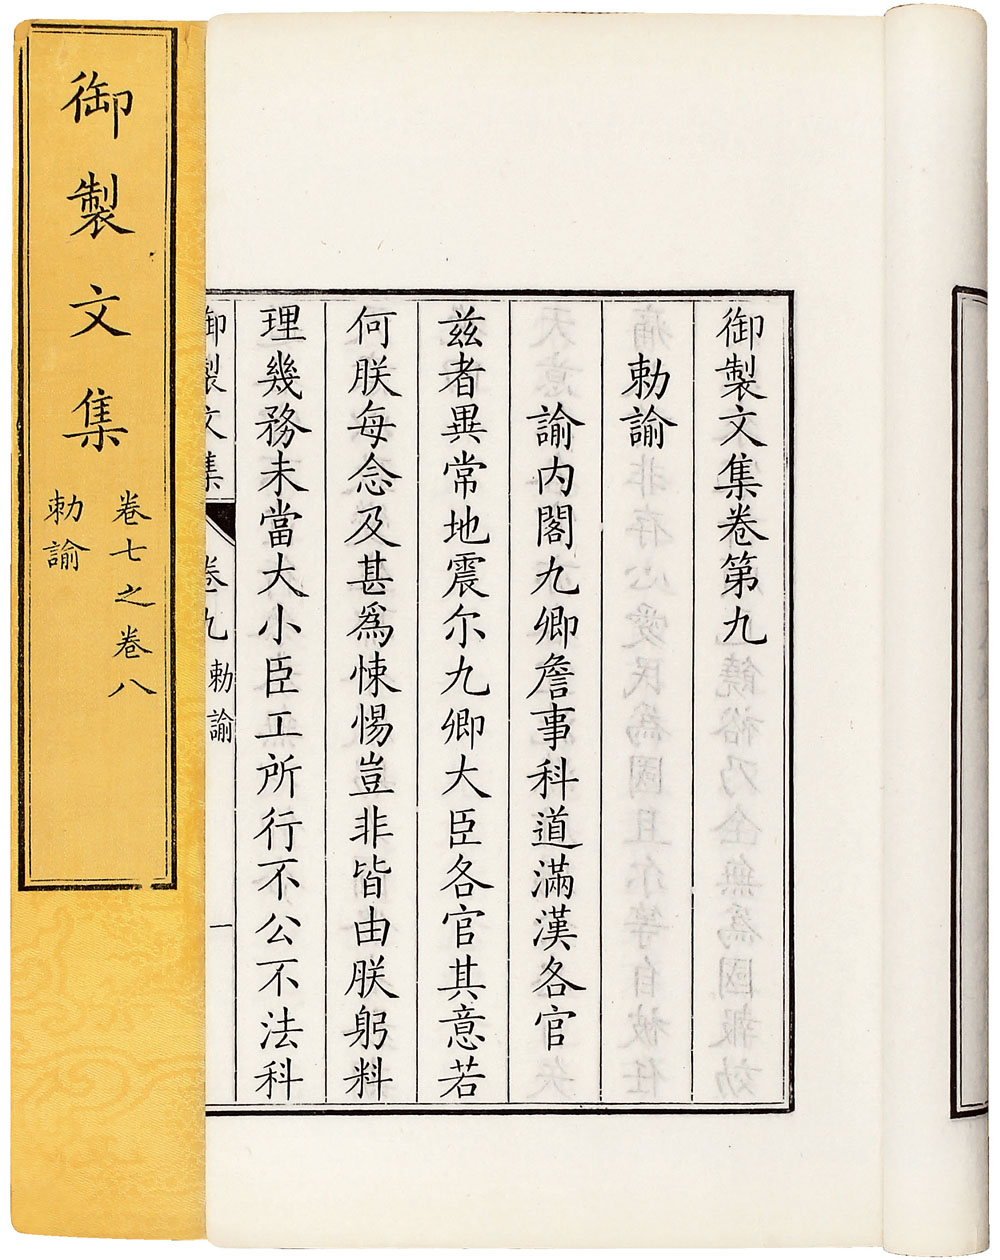 御製文集卷第九
勅諭
諭内閣九卿詹事科道滿漢各官
兹者異常地震尔九卿大臣各官其意若
何朕每念及甚爲悚惕豈非皆由朕躬料
理幾務未當大小臣工所行不公不法科
御製文集 卷九 勅諭 一
御製文集
卷七之卷八
勅諭